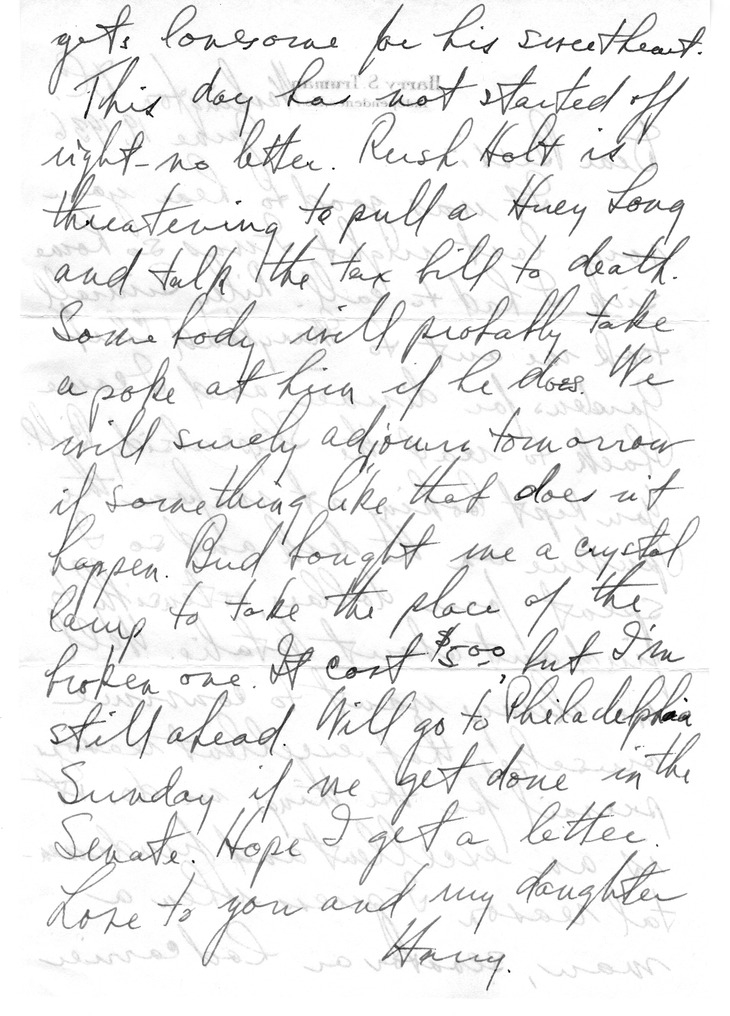 gets lonesome for his sweetheart.
This day has not started off
right - no letter. Rush Holt is
threatening to pull a Huey Long
and talk the tax bill to death.
Somebody will probably take
a poke at him if he does. We
will surely adjourn tomorrow
if something like that does n't
happen. Bud bought me a crystal
lamp to take the place of the
broken one. It cost $5.00, but I'm
still ahead. Will go to Philadelphia
Sunday if we get done in the
Senate. Hope I get a letter.
Love to you and my daughter
Harry.